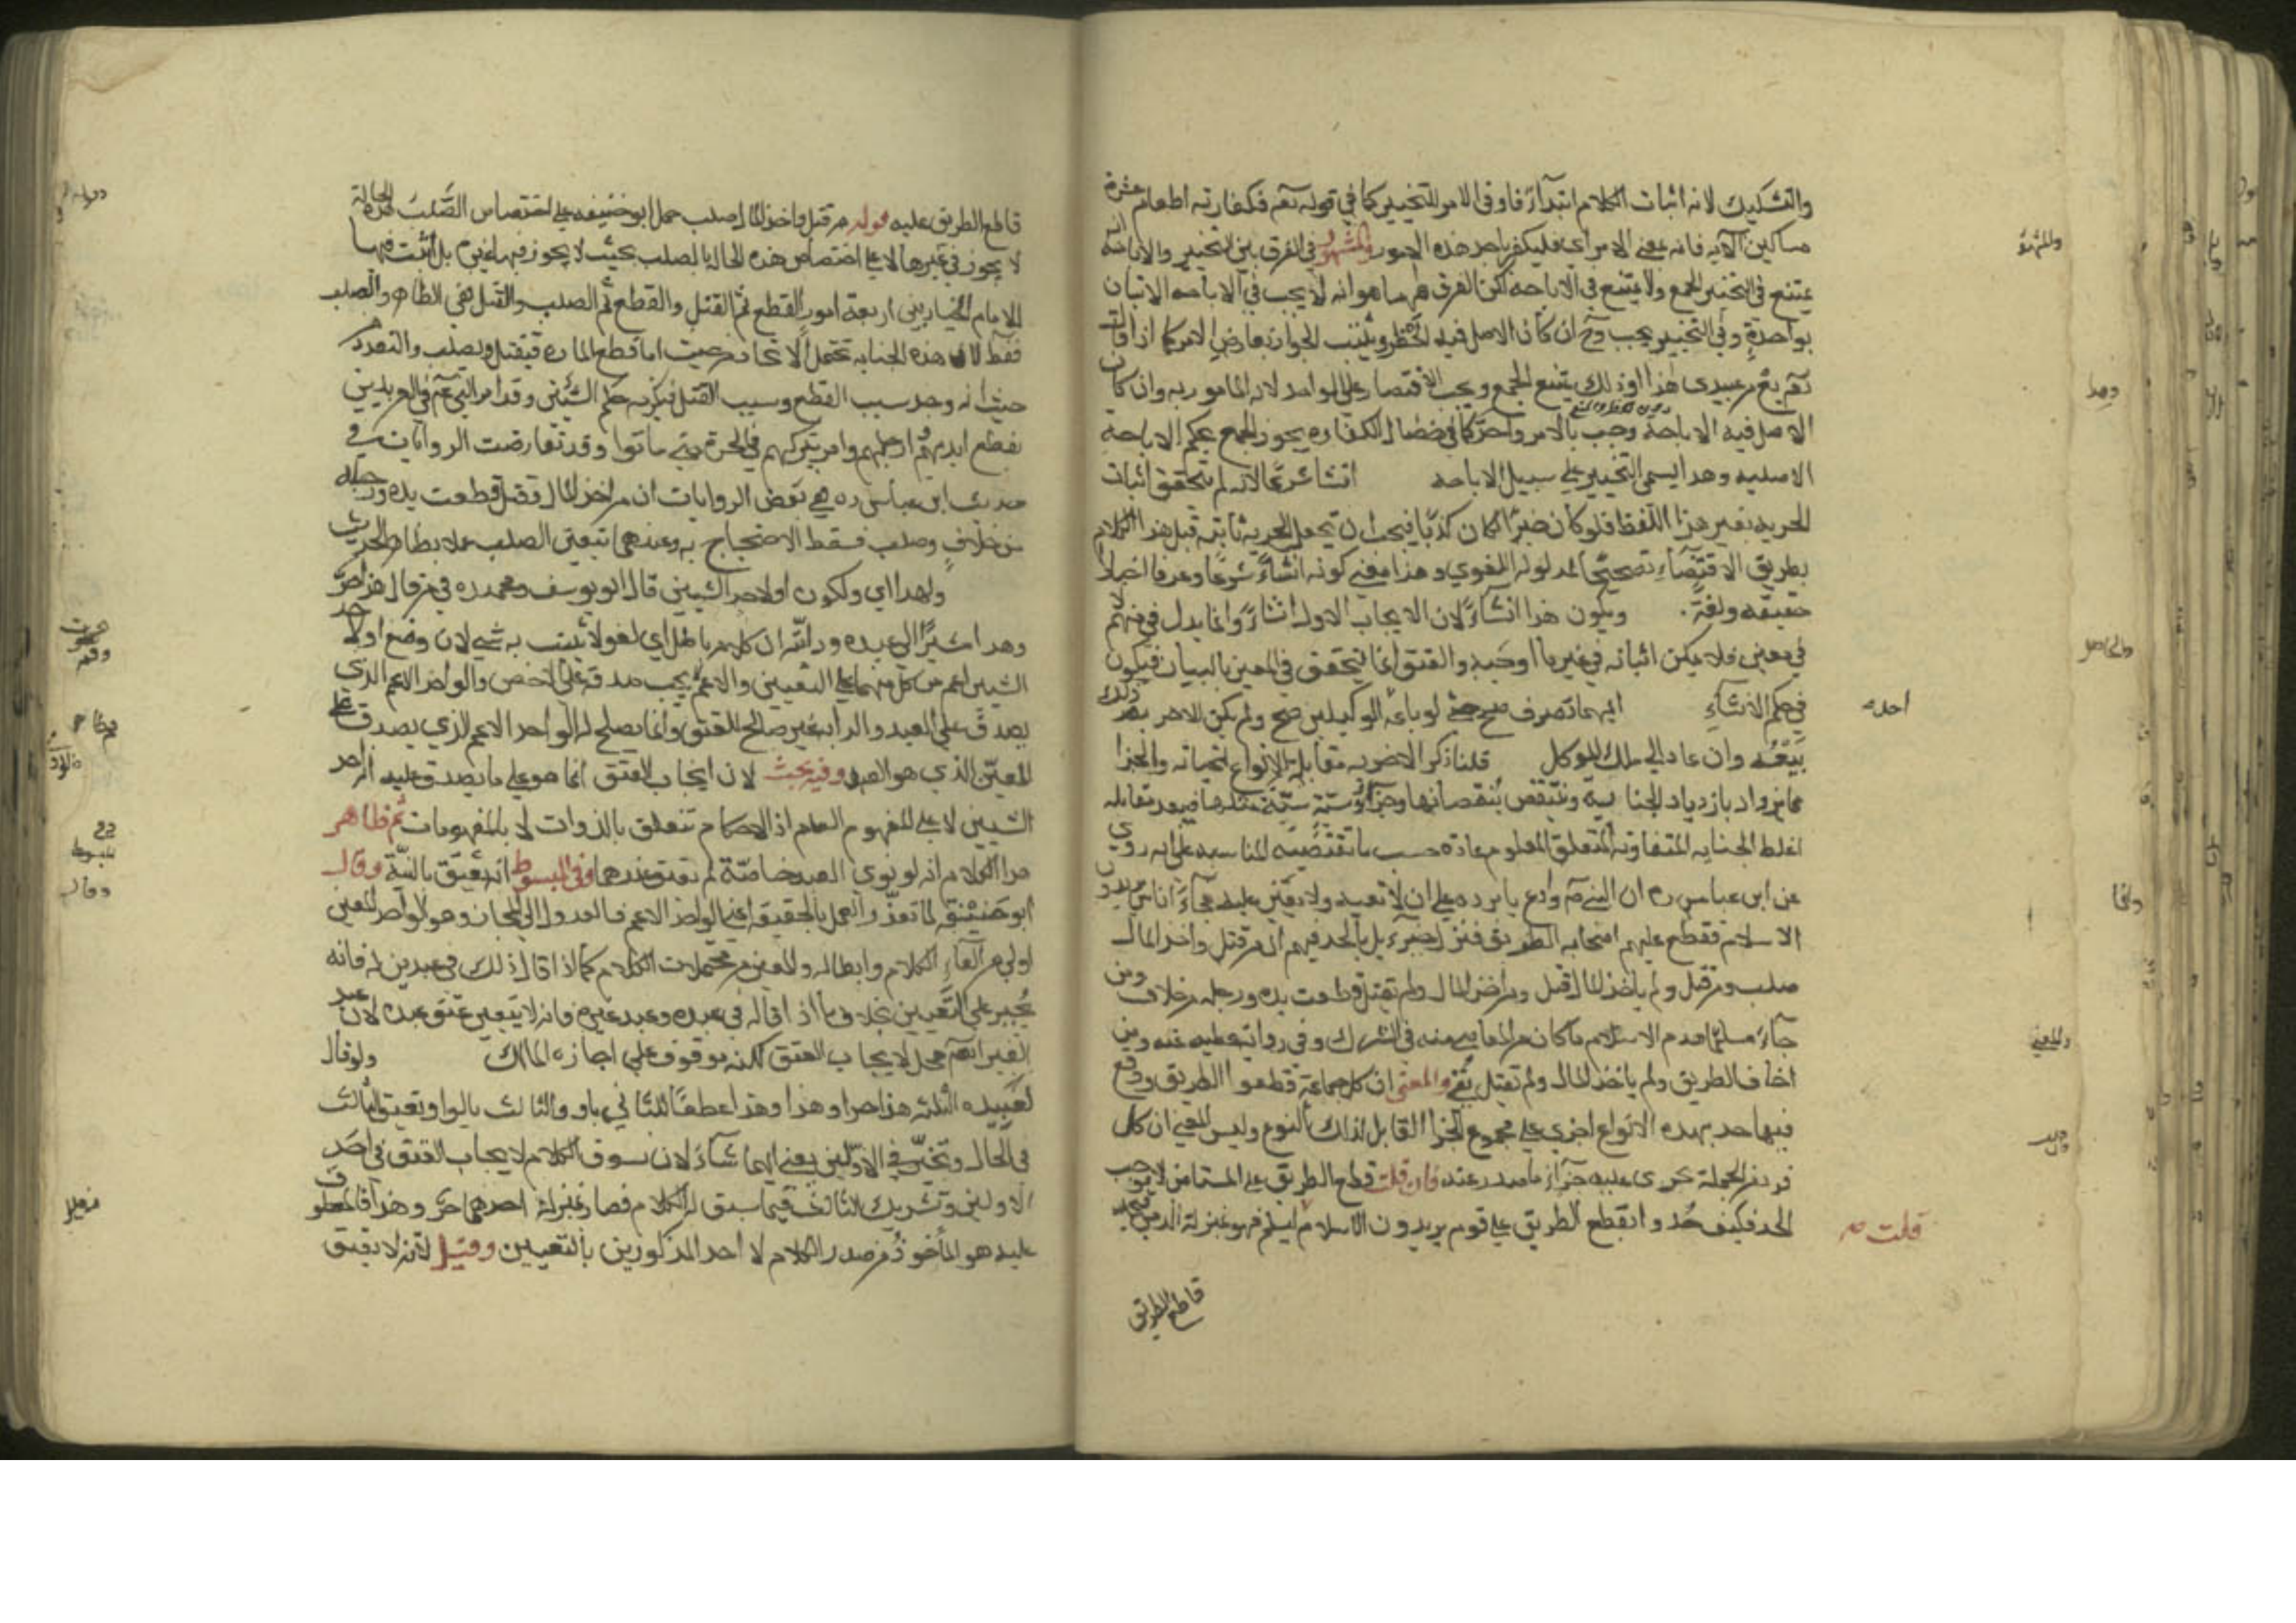 والتشكيك لانه اثبات الكلام ابتداء فاو فى الامر للتخيير كما في قوله تعم فكفارته اطعام عشرة
مساكين الآية فانه بمعنى الامر اى فليكفر باحد هذه الامور والمشهور فى الفرق بين التخيير والاباحة انه
يمتنع فى التخيير الجمع ولا يمتنع فى الاباحة لكن الفرق هم هنا هو انه لا يجب في الاباحه الاتيان
بواحدة وفي التخيير يجب وح ان كان الاصل فيه الحظر ويثبت الجواز بعارض الامر كما اذا قال
بع من عبيدى هذا او ذلك يمتنع الجمع ويجب الاقتصار على الواحد لانه المامور به وان كان
الاصل فيه الاباحة وجب بالامر واحد كما فى خصال الكفاره يجوز الجمع بحكم الاباحة
الاصليه وهذا يسمى التخيير على سبيل الاباحه انشا شرعا لانه لم يتحقق اثبات
الحريه بغير هذا اللفظ فلو كان خبرا لكان كذبا فيجب ان يجعل الحرية ثابتة قبل هذا الكلام
بطريق الاقتضاء تصحيحا لمدلوله اللغوي وهذا معنى كونه انشاء شرعا وعرفا اخبارا
حقيقه ولغة ويكون هذا انشاء لان الايجاب الاول انشاء وانما يدل فى منهم لا
في معين فلا يمكن اثباته في غير ما اوجبه والعتق انما يتحقق في المعين بالبيان فيكون
في حكم الانشاء ايهما تصرف صح حتى لو باعه احد الوكيلين صح ولم يكن للاخر بعد ذلك
بيعه وان عاد الى ملك الموكل قلنا ذكر الاجزيه مقابلة لانواع الجنايه والجزا
مما يزداد بازدياد الجنايه وينتقص بنقصانها وجزاء سيئة سيئة مثلها فيبعد مقابله
اغلظ الجنايه المتفاوته المتعلق المعلوم عاده حسب ما تقتضيه المناسبه على انه روي
عن ابن عباس ره ان النبى عم وادع ابا برده على ان لا يعينه ولا يعين عليه فجاء اناس يريدون
الاسلام فقطع عليهم اصحابه الطريق فنزل جبرءيل بالحد فيهم ان من قتل واخذ المال
صلب ومن قتل ولم ياخذ المال قتل ومن اخذ المال ولم يقتل قطعت يده ورجله من خلاف ومن
جاء مسلما هدم الاسلام ما كان من المعاصى منه فى الشرك وفى رواية عطيه عنه ومن
اخاف الطريق ولم ياخذ المال ولم يقتل نفي والمعنى ان كل جماعة قطعوا الطريق ووقع
فيها احد بهذه الانواع اجري على مجموع الجزا القابل لذلك النوع وليس المعنى ان كل
فرد من الجملة يجرى عليه جزاء ما صدر عنه فان قلت قطع الطريق على المستامن لا يوجب
الحد فكيف حدوا بقطع الطريق على قوم يريدون الاسلام
قلت
احد
قاطع الطريق
قاطع الطريق عليه قوله من قتل واخذ المال صلب حمل ابو حنيفه على اختصاص الصلب بهذه الحالة
لا يجوز في غيرها لا على اختصاص هذه الحاله بالصلب بحيث لا يجوز فيها غيره بل اثبت فيها
للامام الخيار بين اربعة امور القطع ثم القتل والقطع ثم الصلب والقتل فقط والصلب
فقط لان هذه الجنايه تحتمل الاتحاد من حيث انها قطع الماره فيقتل او يصلب والتعدد
حيث انه وجد سبب القطع وسبب القتل فيلزمه حكم السببين وقد امر النبي عم فى العرنيين
بقطع ايديهم وارجلهم وامر بتركهم في الحرة حتى ماتوا وقد تعارضت الروايات في
حديث ابن عباس ره ففى بعض الروايات ان من اخذ المال وقتل قطعت يده ورجله
من خلاف وصلب فسقط الاحتجاج به وعندهما يتعين الصلب عملا بظاهر الحديث
ولهذا اي ولكون او لاحد الشيئين قال ابو يوسف ومحمد ره في من قال هذا حر
وهذا مشيرا الى عبده ودابته ان كلامه باطل اي لغو لا يثبت به شى لان وضع او لاحد
الشيئين اعم من كل منهما على التعيين والاعم يجب صدقه على الاخص والواحد الاعم الذي
يصدق على العبد والدابة غير صالح للعتق وانما يصلح له الواحد الاعم الذي يصدق على
المعين الذي هو العبد وفيه بحث لان ايجاب العتق انما هو على ما يصدق عليه احد
الشيئين لا على المفهوم العام اذ الاحكام تتعلق بالذوات لا بالمفهومات ثم ظاهر
هذا الكلام انه لو نوى العبد خاصة لم يعتق عندهما وفى المبسوط انه يعتق بالنية وقال
ابو حنيفه لما تعذر العمل بالحقيقه اعنى الواحد الاعم فالعدول الى المجاز وهو الواحد المعين
اولى من الغاء الكلام وابطاله والمعين من محتملات الكلام كما اذا قال ذلك فى عبدين له فانه
يجبر على التعيين بخلاف ما اذا قال في عبده وعبد غيره فانه لا يتعين عتق عبده لان عبد
الغير ايضا محل لايجاب العتق لكنه موقوف على اجازه المالك ولو قال
لعبيده الثلثه هذا حر او هذا وهذا عطفا للثاني باو والثالث بالواو يعتق الثالث
فى الحال ويخير في الاولين يعني ايهما شاء لان سوق الكلام لايجاب العتق في احد
الاولين وتشريك الثالث فيما سبق له الكلام فصار بمنزلة احدهما حر وهذا فالمعطوف
عليه هو الماخوذ من صدر الكلام لا احد المذكورين بالتعيين وقيل لانه لا يعتق